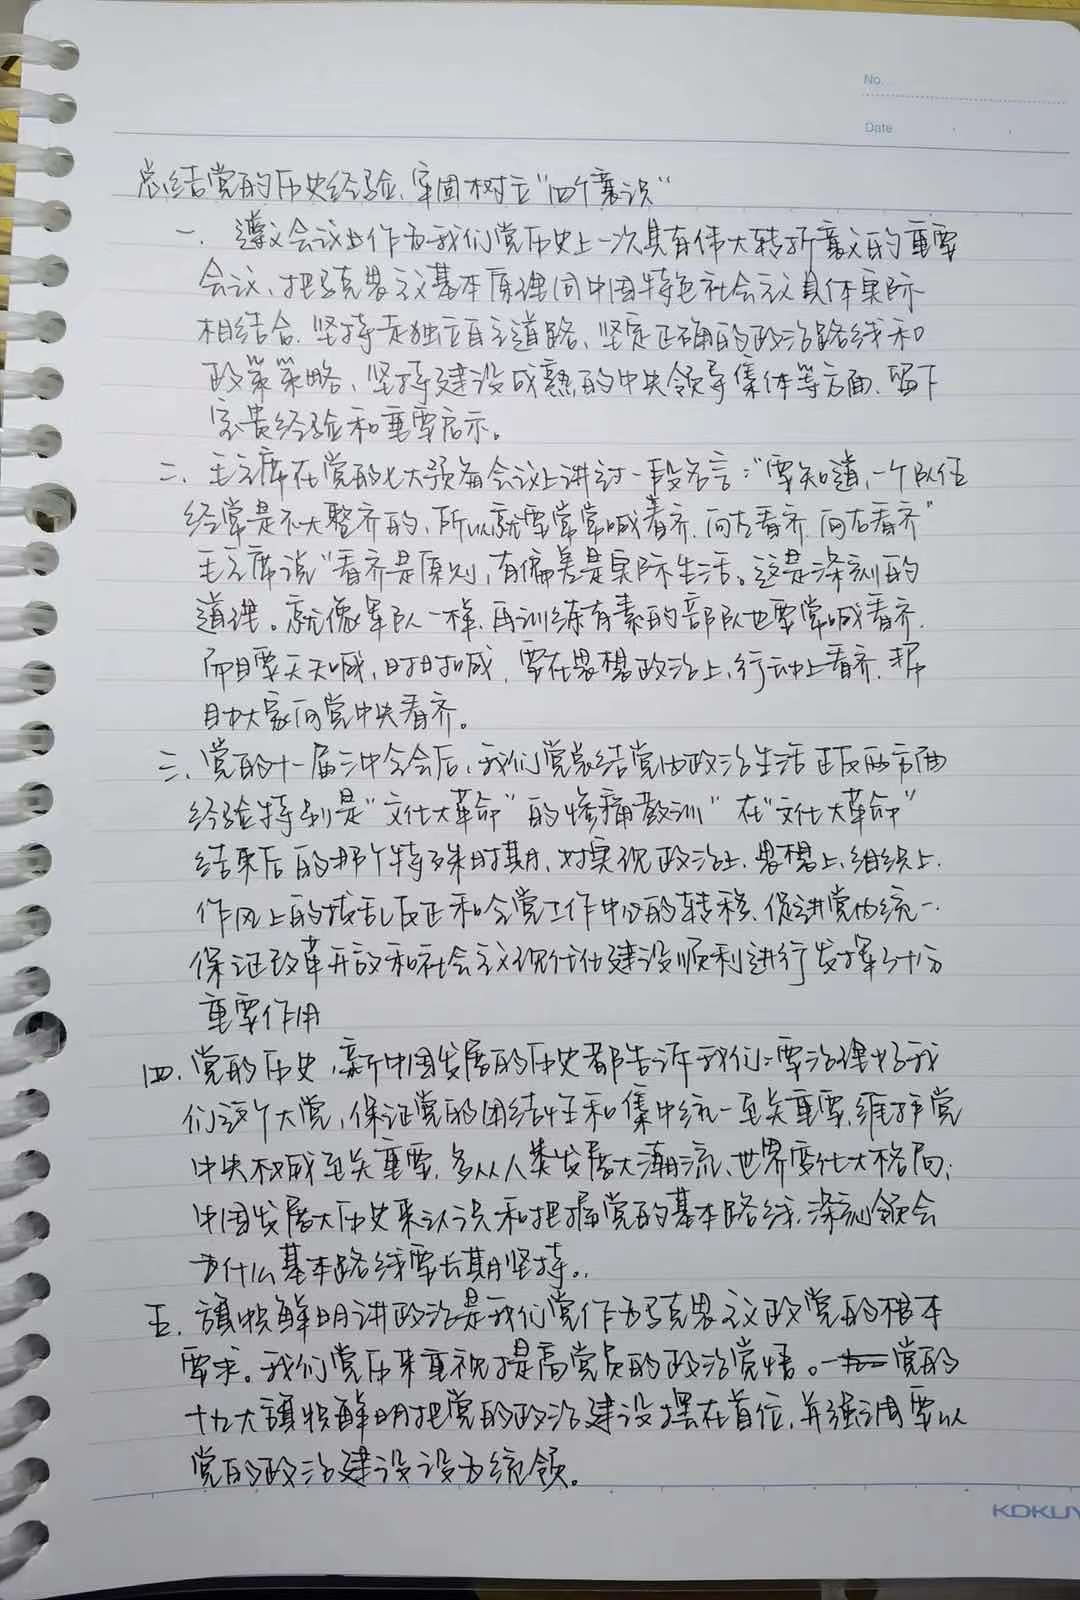 No.
Date
总结党的历史经验、牢固树立"四个意识"
一、遵义会议作为我们党历史上一次具有伟大转折意义的重要
会议、把马克思主义基本原理同中国特色社会主义具体实际
相结合、坚持走独立自主道路、坚定正确的政治路线和
政策策略、坚持建设成熟的中央领导集体等方面、留下
宝贵经验和重要启示。
二、毛主席在党的七大预备会议上讲过一段名言："要知道,一个队伍
经常是不大整齐的,所以就要常常喊看齐、向左看齐、向右看齐"
毛主席说"看齐是原则,有偏差是实际生活。这是深刻的
道理。就像军队一样、再训练有素的部队也要常喊看齐、
而且要天天喊,时时喊,要在思想政治上、行动上看齐、帮
助大家向党中央看齐。
三、党的十一届三中全会后,我们党总结党内政治生活正反两方面
经验特别是"文化大革命"的惨痛教训"在"文化大革命"
结束后的那个特殊时期、对实现政治上、思想上、组织上、
作风上的拨乱反正和全党工作中心的转移、促进党的统一、
保证改革开放和社会主义现代化建设顺利进行发挥了十分
重要作用
四、党的历史,新中国发展的历史都告诉我们:要治理好我
们这个大党,保证党的团结性和集中统一至关重要,维护党
中央权威至关重要,多从人类发展大潮流、世界变化大格局、
中国发展大历史来认识和把握党的基本路线,深刻领会
为什么基本路线要长期坚持。
五、旗帜鲜明讲政治是我们党作为马克思主义政党的根本
要求。我们党历来重视提高党员的政治觉悟。党的
十九大旗帜鲜明把党的政治建设摆在首位,并强调要以
党的政治建设设为统领。
KOKUY